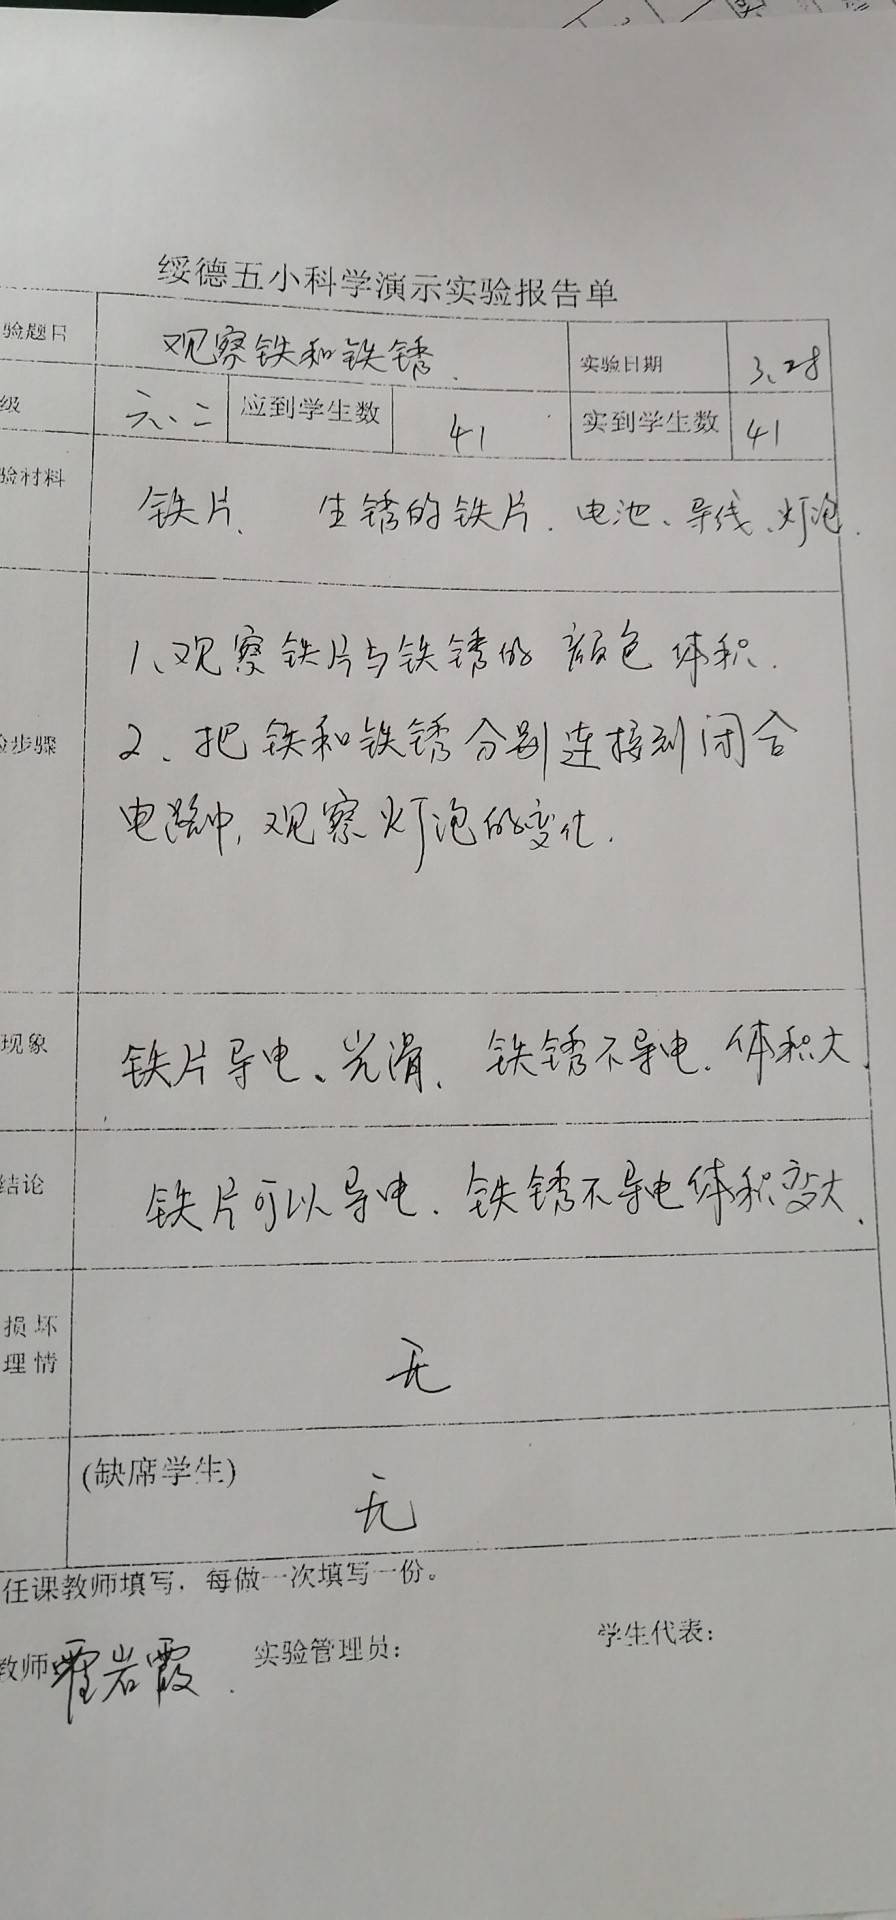 绥德五小科学演示实验报告单
验题目 观察铁和铁锈. 实验日期 3.28
级 六、二 应到学生数 41 实到学生数 41
验材料 铁片、 生锈的铁片、电池、导线、灯泡.
1、观察铁片与铁锈的颜色体积.
步骤 2、把铁和铁锈分别连接到闭合
电路中,观察灯泡的变化.
现象 铁片导电、光滑、铁锈不导电.体积大.
结论 铁片可以导电.铁锈不导电体积变大.
损坏
理情 无
(缺席学生)
无
任课教师填写，每做一次填写一份。
教师 霍岩霞. 实验管理员： 学生代表：